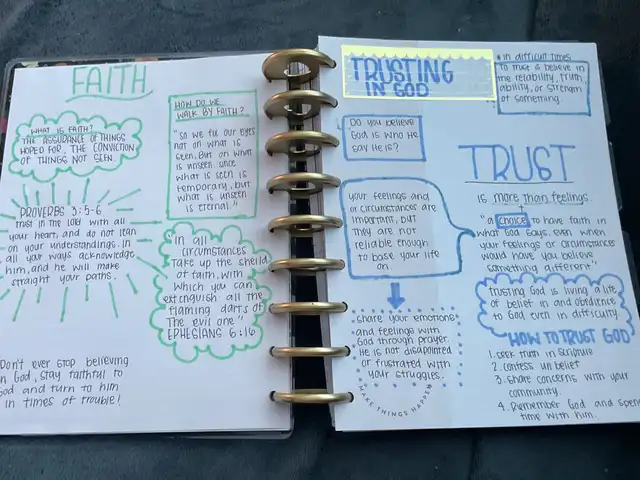 FAITH
WHAT IS FAITH?
THE ASSURANCE OF THINGS
HOPED FOR, THE CONVICTION
OF THINGS NOT SEEN.
HOW DO WE
WALK BY FAITH?
"SO WE FIX OUR EYES
NOT ON WHAT IS
SEEN, BUT ON WHAT
IS UNSEEN SINCE
WHAT IS SEEN IS
TEMPORARY, BUT
WHAT IS UNSEEN
IS ETERNAL."
PROVERBS 3:5-6
Trust in the lord with all
your heart, and do not lean
on your understandings. In
all your ways acknowledge
him, and he will make
straight your paths.
"In all
circumstances
take up the shield
of faith, with
Which you can
extinguish all the
flaming darts of
The evil one"
EPHESIANS 6:16
Don't ever stop believing
in God, stay faithful to
God and turn to him
in times of trouble!
TRUSTING
IN GOD
* In difficult times
To trust is believe in
the reliability, truth,
ability, or strength
of something.
Do you believe
God is who He
say He is?
TRUST
is more than feelings
"a choice to have faith in
what God says, even when
your feelings or circumstances
would have you believe
something different"
your feelings and
or circumstances are
important, but
They are not
reliable enough
to base your life
on.
Trusting God is living a life
of belief in and obedience
to God even in difficulty.
share your emotions
and feelings with
God through prayer.
He is not disapointed
or frustrated with
your struggles.
MAKE THINGS HAPPEN
HOW TO TRUST GOD
1. seek truth in scripture
2. confess unbelief
3. share concerns with your
community.
4. Remember God and spend
time with him.